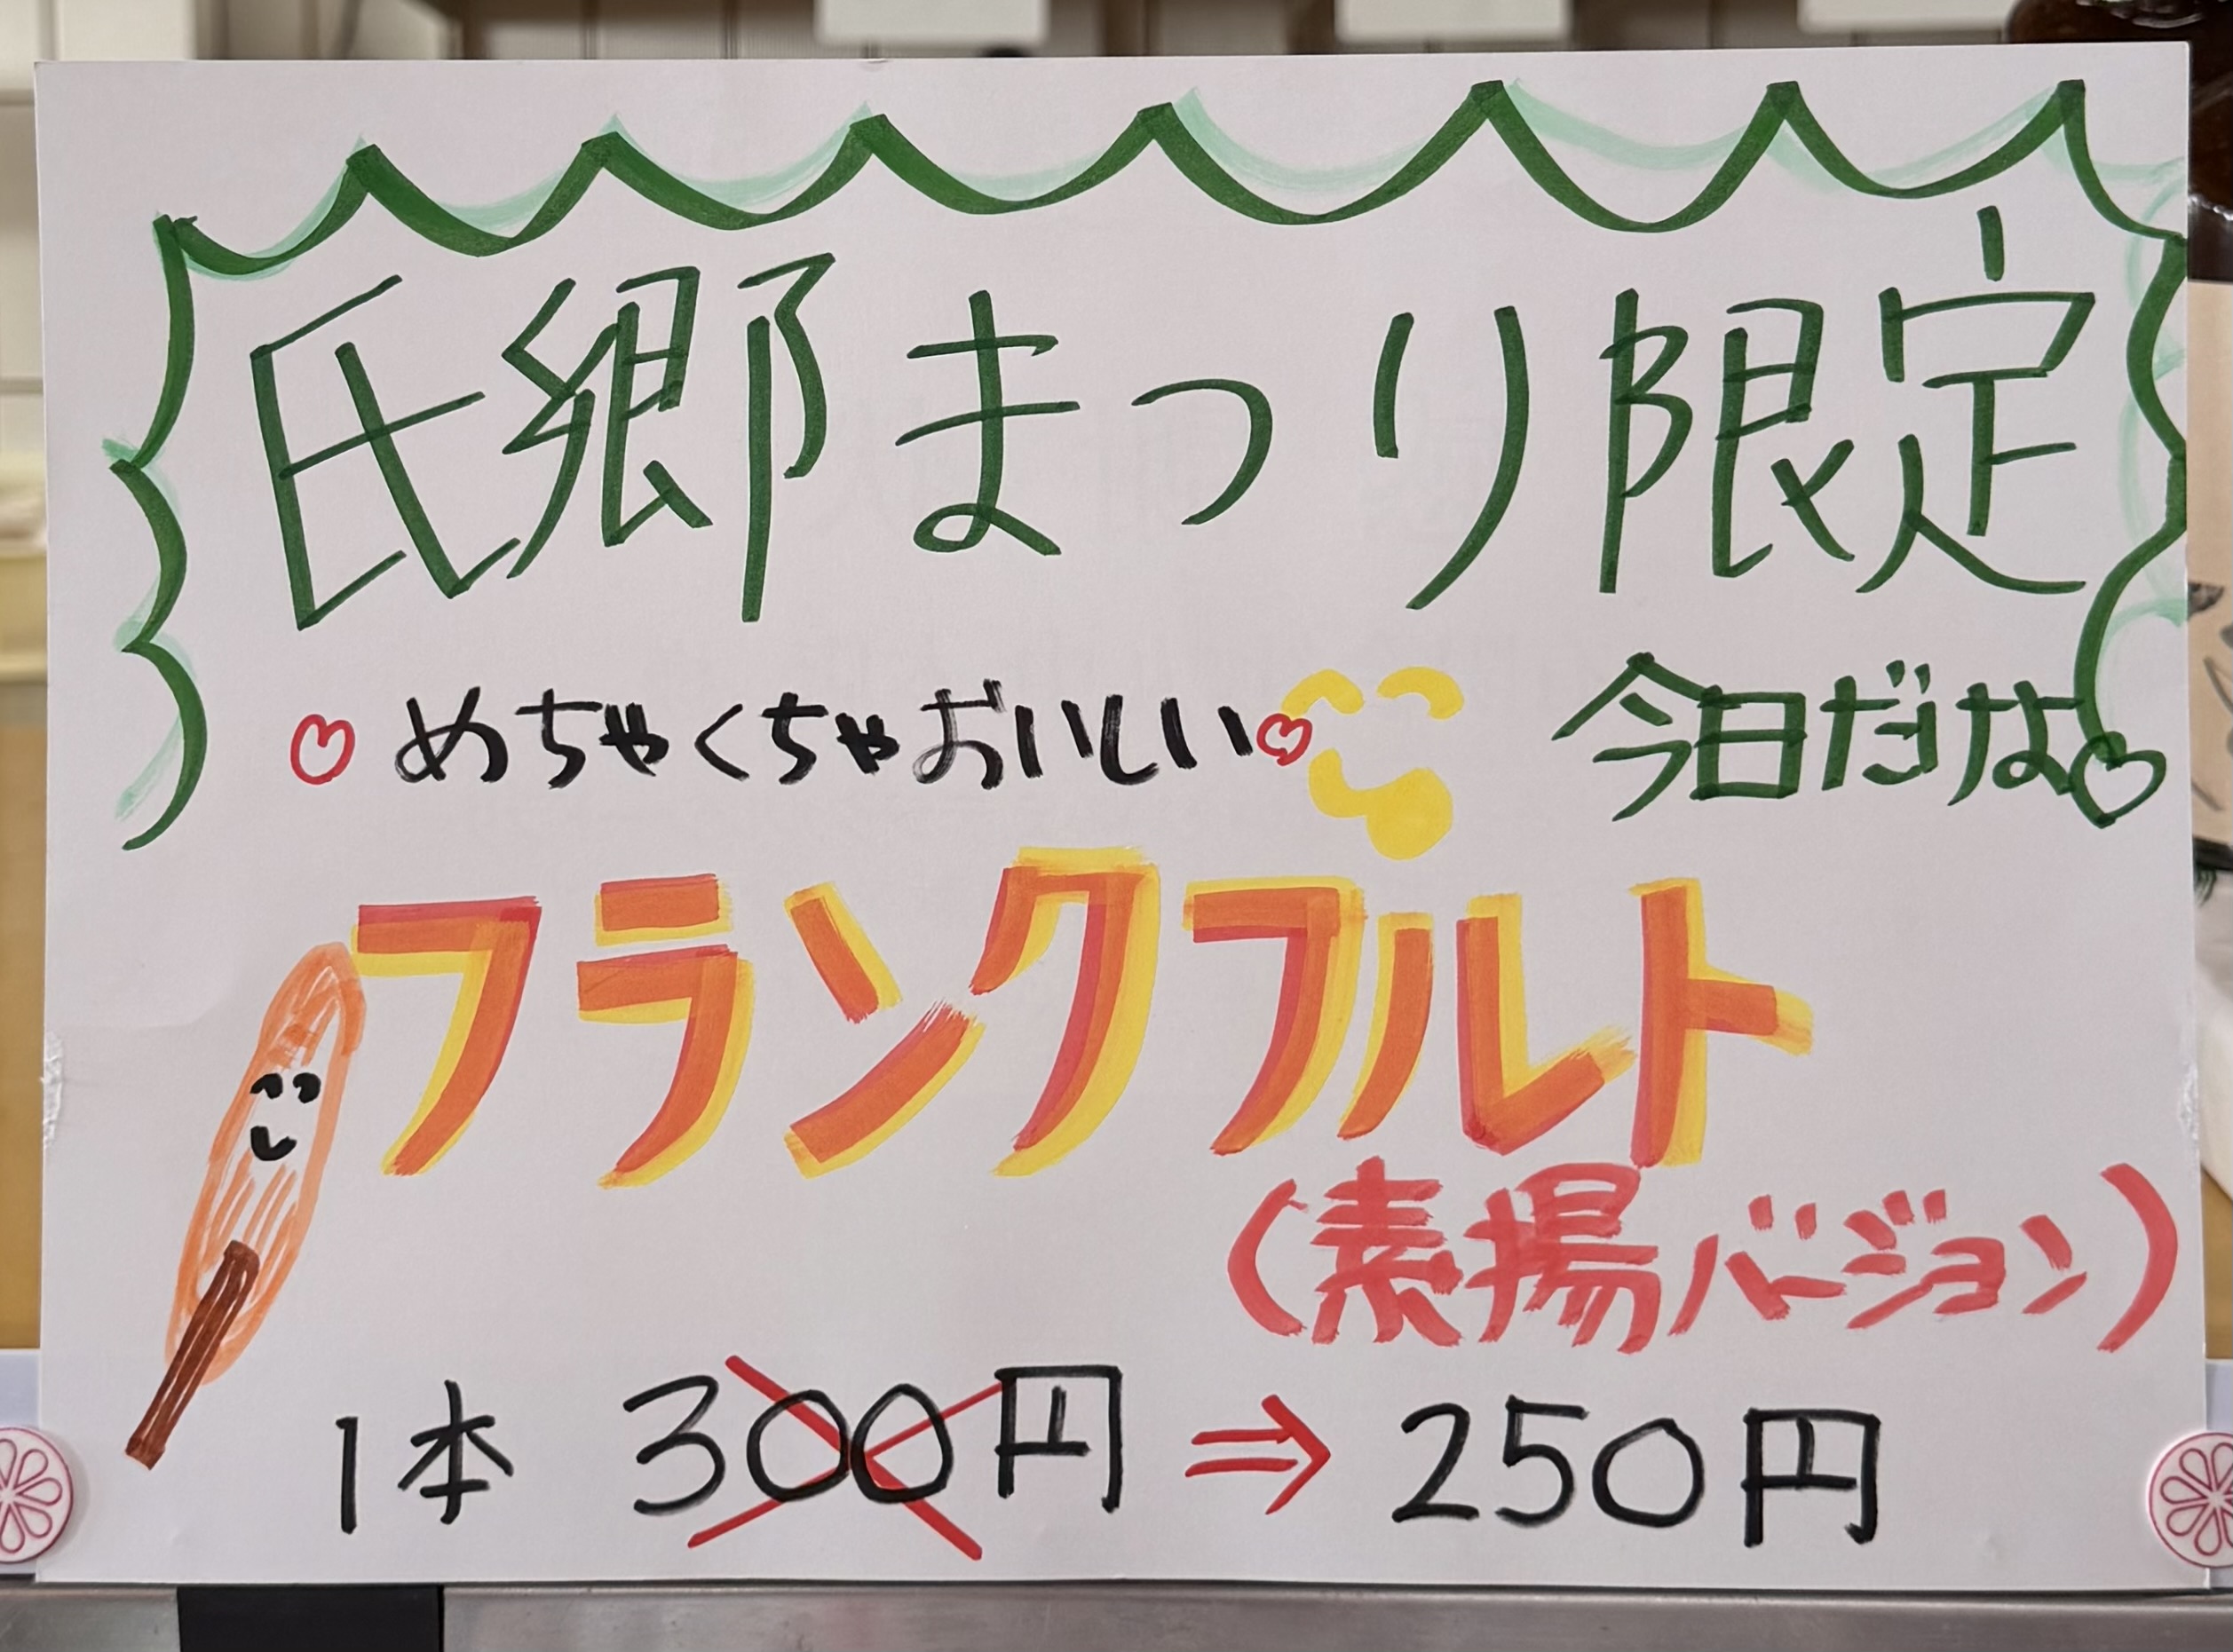 氏郷まつり限定
♡めちゃくちゃおいしい♡ 今日だけ♡
フランクフルト
(素揚バージョン)
1本 300円⇒250円